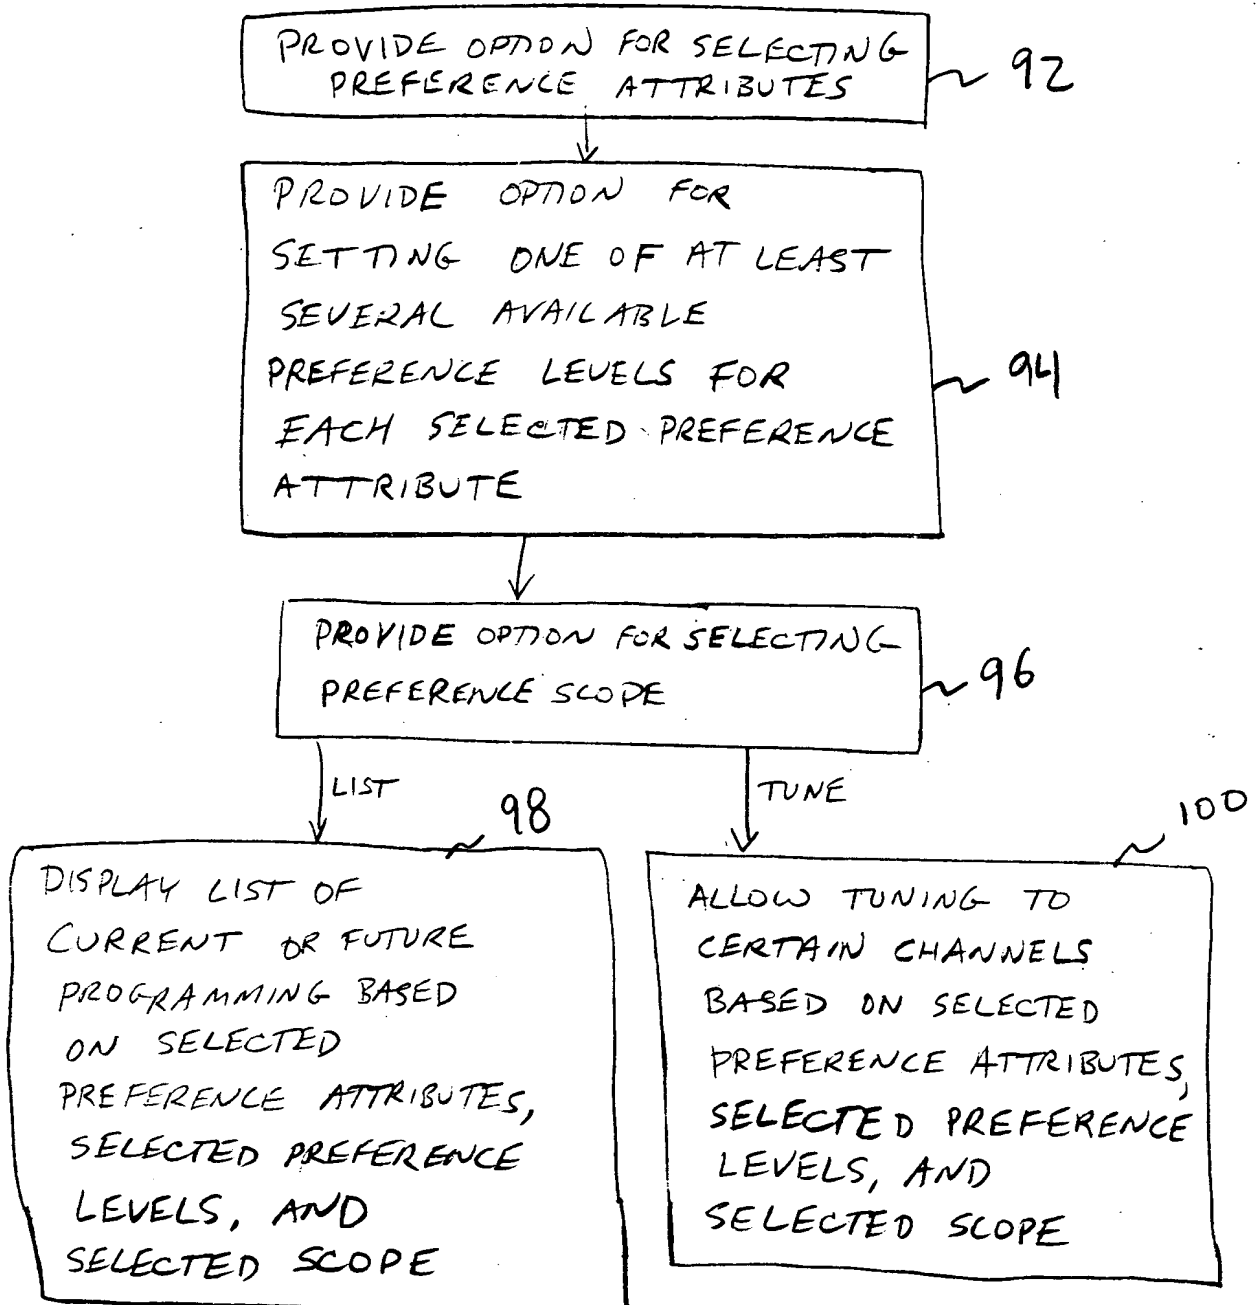 PROVIDE OPTION FOR SELECTING
PREFERENCE ATTRIBUTES
92
PROVIDE OPTION FOR
SETTING ONE OF AT LEAST
SEVERAL AVAILABLE
PREFERENCE LEVELS FOR
EACH SELECTED PREFERENCE
ATTRIBUTE
94
PROVIDE OPTION FOR SELECTING
PREFERENCE SCOPE
96
LIST
TUNE
98
DISPLAY LIST OF
CURRENT OR FUTURE
PROGRAMMING BASED
ON SELECTED
PREFERENCE ATTRIBUTES,
SELECTED PREFERENCE
LEVELS, AND
SELECTED SCOPE
100
ALLOW TUNING TO
CERTAIN CHANNELS
BASED ON SELECTED
PREFERENCE ATTRIBUTES,
SELECTED PREFERENCE
LEVELS, AND
SELECTED SCOPE